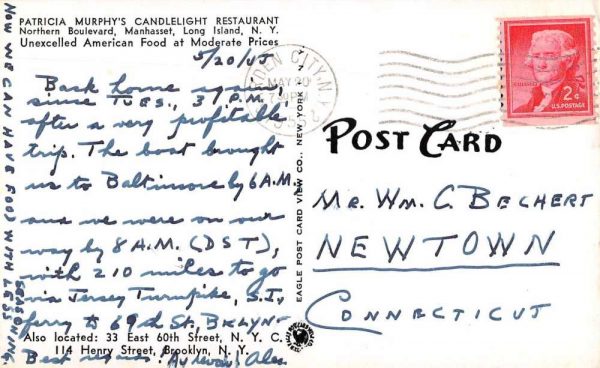 PATRICIA MURPHY'S CANDLELIGHT RESTAURANT
Northern Boulevard, Manhasset, Long Island, N. Y.
Unexcelled American Food at Moderate Prices
5/20/55
Back home again,
since TUES., 3 P.M.,
after a very profitable
trip. The boat brought
us to Baltimore by 6 A.M.
and we were on our
way by 8 A.M. (DST),
with 210 miles to go
via Jersey Turnpike, S.I.,
ferry to 69th St., BKLYN-
Also located: 33 East 60th Street, N. Y. C.
114 Henry Street, Brooklyn, N. Y.
Best regards!
NOW WE CAN HAVE FOOD WITH LESS
SEASONING.
EAGLE POST CARD VIEW CO., NEW YORK
CITY N.Y.
MAY 20
POST CARD
2¢
U.S. POSTAGE
MR. WM. C. BECHERT
NEWTOWN
CONNECTICUT